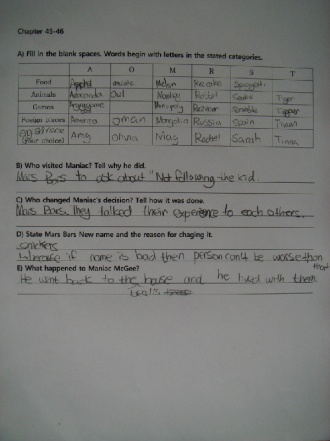 Chapter 45-46
A) Fill in the blank spaces. Words begin with letters in the stated categories.
A O M R S T
Food Apple Melon Spagetti
Animals Anaconda Owl Rabbit Tiger
Games Monopoly Scrabble
Foreign places America Oman Mongolia Russia Spain
girls name (your choice) Amy Olivia Mag Rachel Sarah Tiana
B) Who visited Maniac? Tell why he did.
Mars Bars to ask about "Not following the kid.
C) Who changed Maniac's decision? Tell how it was done.
Mars Bars. They talked their experience to each others.
D) State Mars Bars New name and the reason for chaging it.
snickers
because if name is bad then person can't be worse than that
E) What happened to Maniac McGee?
He went back to the house and he lived with them